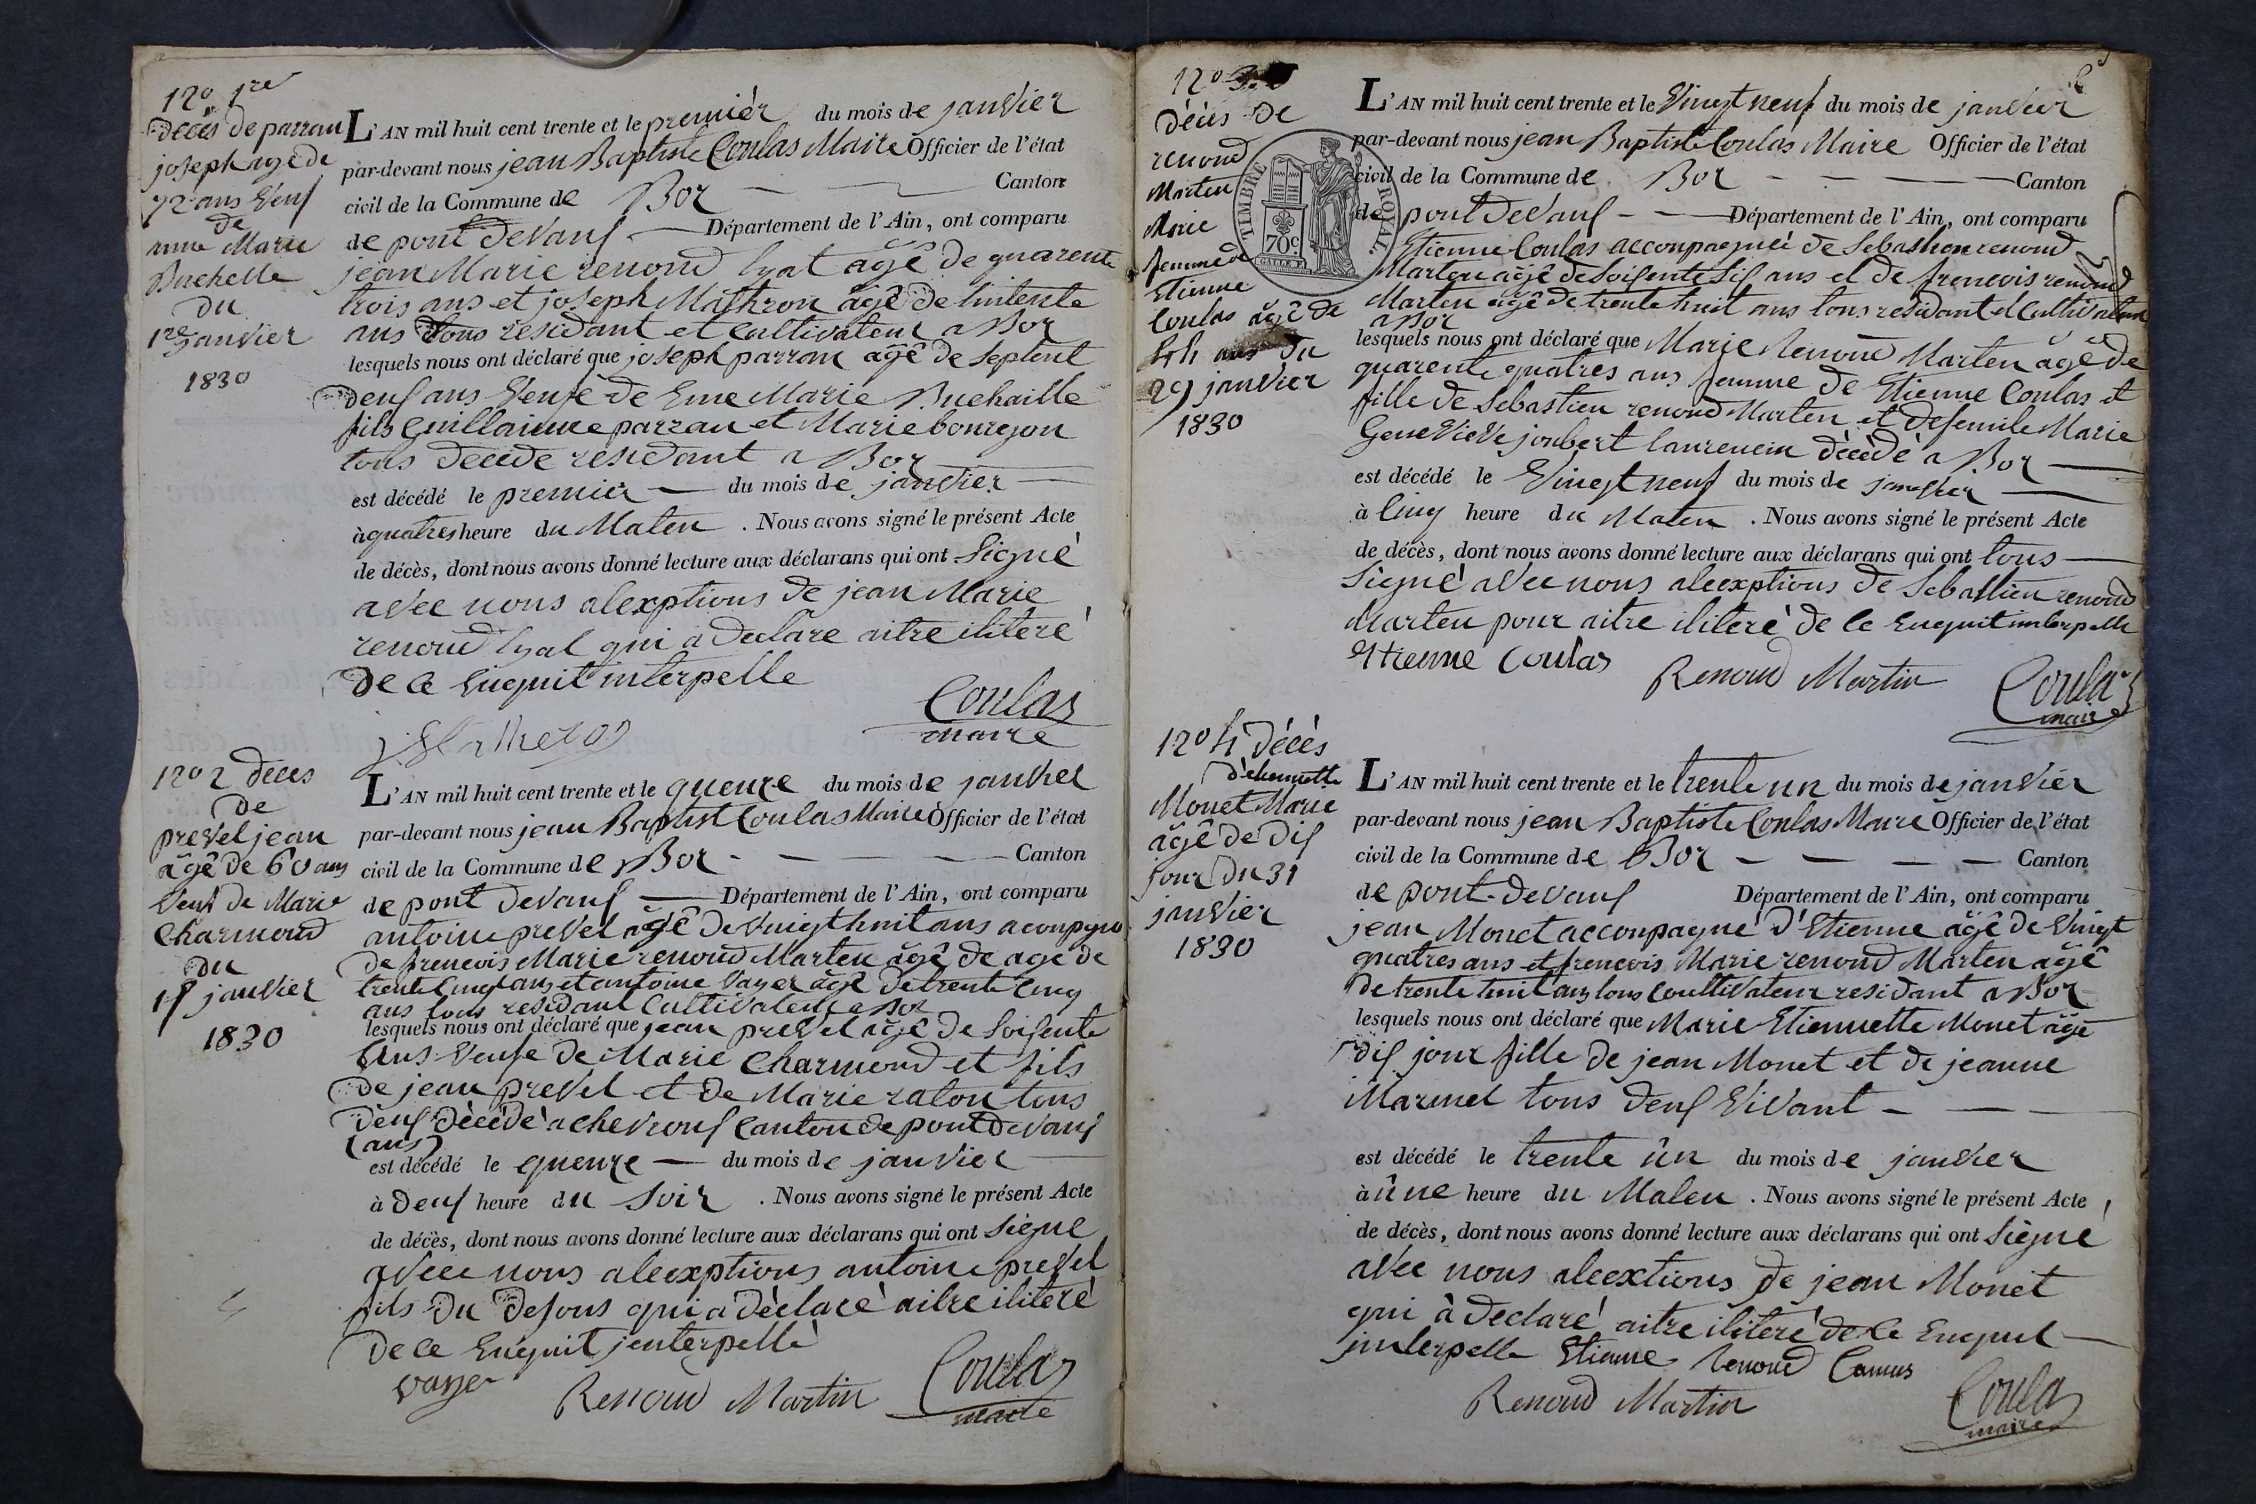 120 1re
décès de parrau
joseph agé de
72 ans Veuf
de
anne Marie
Buchelle
du
1re janvier
1830
L'AN mil huit cent trente et le premièr du mois de janvier
par-devant nous jean Baptiste Coulas Maire Officier de l'état
civil de la Commune de Boz Canton
de pont devauf Département de l'Ain, ont comparu
jean Marie renoud lyat agê de quarente
trois ans et joseph Mathron âgê de trintente
ans tous residant et Cultivateur a Boz
lesquels nous ont déclaré que joseph parrau âgê de septent
deuf ans Veufe de Eme Marie Buchaille
fils Guillaiume parrau et Marie bouryon
tous décédé residant a Boz
est décédé le premier du mois de janvier
à quatres heure du Maten . Nous avons signé le présent Acte
de décès, dont nous avons donné lecture aux déclarans qui ont signé
avec nous alexptions de jean Marie
renoud lyat qui a declare aitre ilitere
de ce Enquit interpelle
Coulas
maire
1202 déces
de
prevel jean
âgé de 60 ans
Veuf de Marie
Charmond
du
15 janvier
1830
L'AN mil huit cent trente et le quenze du mois de janvier
par-devant nous jean Baptist Coulas Maire Officier de l'état
civil de la Commune de Boz Canton
de pont devauf Département de l'Ain, ont comparu
antoine prevel agê de vuingthuit ans acoupgno
de frencois Marie renoud Marten âgê de age de
trente Cinq ans et antoine Vayer âgê de trente Cinq
ans tous residant Cultivateur a Boz
lesquels nous ont déclaré que jean prevel âgê de soisente
ans Veufe de Marie Charmond et fils
de jean prevel et de Marie raton tous
deuf décédé a chevrouf Canton de pont devauf
(ans)
est décédé le quenze du mois de janvier
à deuf heure du soir . Nous avons signé le présent Acte
de décès, dont nous avons donné lecture aux déclarans qui ont signe
avece nous aleexptions antoine prevel
fils du desous qui a déclaré aitre ilitere
de ce Enquit jenterpellé
vayer Renoud Martin Coulas
maire
120 3
décès de
renoud
Marten
Marie
femme de
Etienne
Coulas âgê de
44 ans du
29 janvier
1830
TIMBRE ROYAL
70c
L'AN mil huit cent trente et le Vingt neuf du mois de janvier
par-devant nous jean Baptiste Coulas Maire Officier de l'état
civil de la Commune de Boz Canton
de pont devauf Département de l'Ain, ont comparu
Etienne Coulas accoupagnéé de Sebastien renoud
Marten âgê de soisente sis ans et de frencois renoud
Marten âgê de trente huit ans tous residant et Cultivateur
a Boz
lesquels nous ont déclaré que Marie Renoud Marten âgê de
quarente quatres ans femme de Etienne Coulas et
fille de Sebastien renoud Marten et defemile Marie
Genevieve joubert laurencin décédé a Boz
est décédé le Vingt neuf du mois de janvier
à Cinq heure du Maten . Nous avons signé le présent Acte
de décès, dont nous avons donné lecture aux déclarans qui ont tous
signé avec nous aleexptions de Sebastien renoud
Marten pour aitre ilitere de ce Enquit interpelle
Etienne Coulas Renoud Martin Coulas
maire
120 4 décès
d'etiennette
Monet Marie
âgê de dif
jour du 31
janvier
1830
L'AN mil huit cent trente et le trente un du mois de janvier
par-devant nous jean Baptiste Coulas Maire Officier de l'état
civil de la Commune de Boz Canton
de pont devauf Département de l'Ain, ont comparu
jean Monet accoupagné d'Etienne âgê de Vingt
quatres ans et frencois Marie renoud Marten âgê
de trente huit ans tous coultivateur residant a Boz
lesquels nous ont déclaré que Marie Etiennette Monet âgê
dif jour fille de jean Monet et de jeanne
Marmet tous deuf Vivant
est décédé le trente ûn du mois de janvier
à ûne heure du Maten . Nous avons signé le présent Acte
de décès, dont nous avons donné lecture aux déclarans qui ont signé
avec nous aleextions de jean Monet
qui à declaré aitre ilitere de ce Enquit
jnterpelle Etienne Renoud Camus
Renoud Martin Coulas
maire